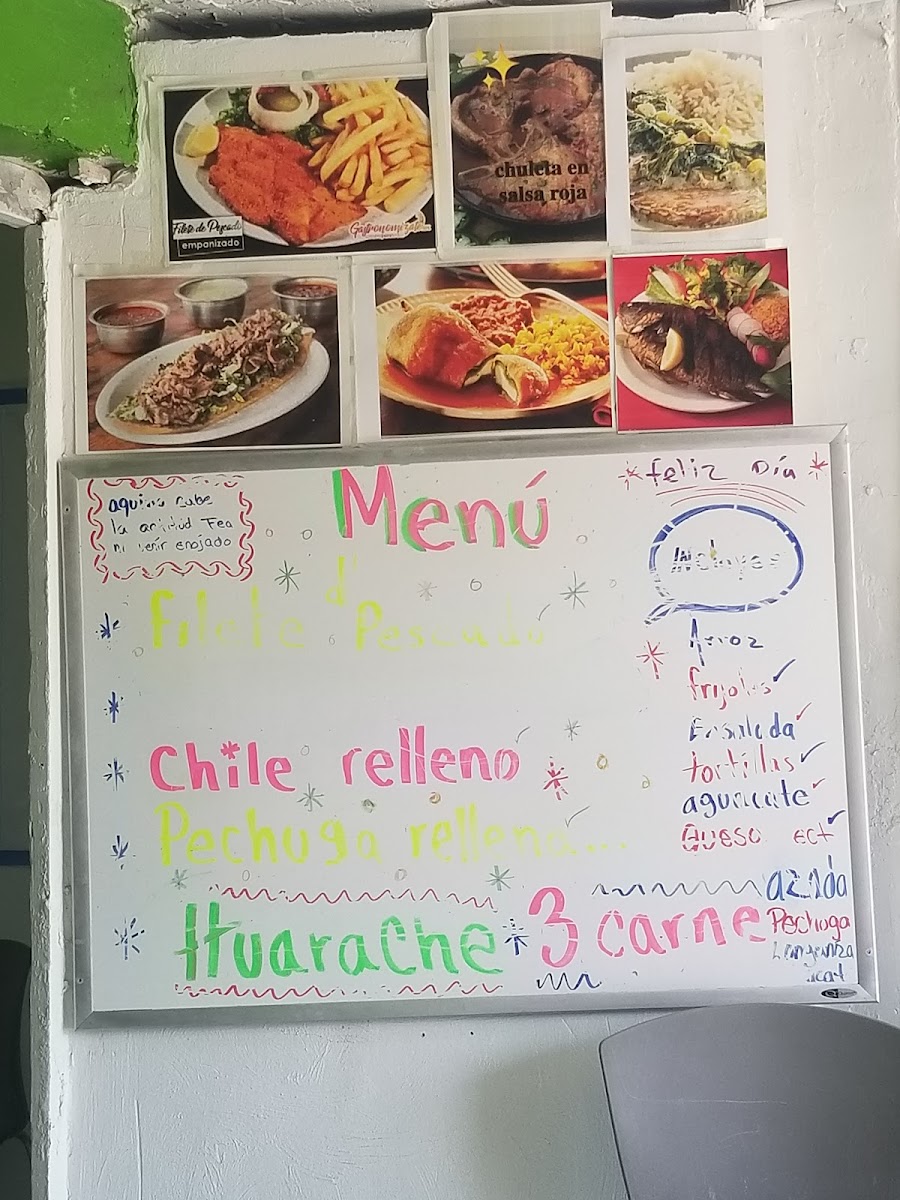 Filete de Pescado
empanizado
Gastronomízate
chuleta en
salsa roja
Menú
feliz Día
aqui no cabe
la actitud Fea
ni venir enojado
Incluyes
Filete d' Pescado
Chile relleno
Pechuga rellena...
Huarache 3 carne
Arroz
frijoles
Ensalada
tortillas
aguacate
Queso ect
azada
Pechuga